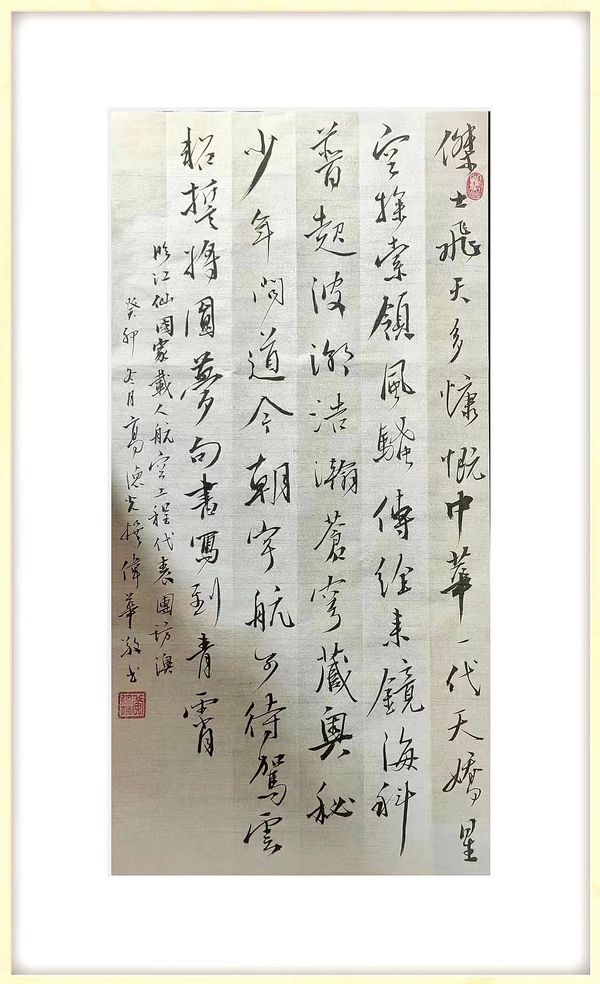 傑士飛天多慷慨中華一代天嬌星
空探索領風騷傳經來鏡海科
普起波瀾浩瀚蒼穹藏奧秘
少年問道今朝宇航可待駕雲
軺援將圓夢句書寫到青霄
臨江仙國家載人航空工程代表團訪澳
癸卯冬月高德光撰偉華敬書